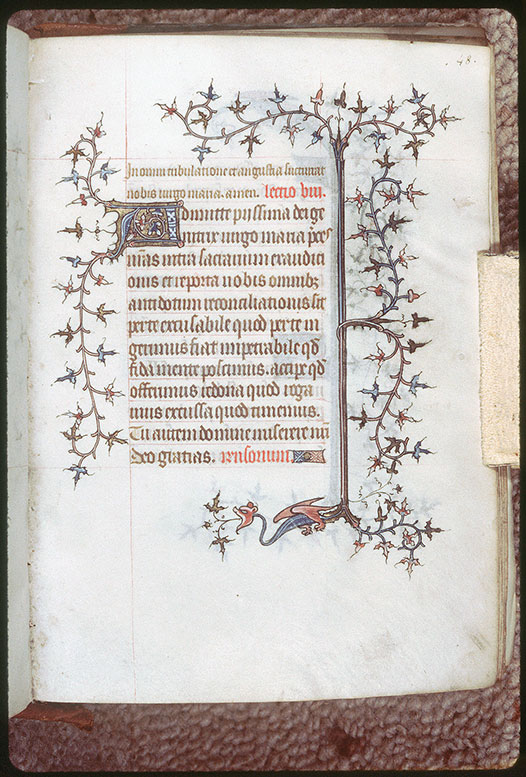 48.
In omni tribulatione et angustia succurrat
nobis virgo maria. amen. lectio viii.
Admitte piissima dei ge
nitrix virgo maria pces
nras intra sacrarium exauditi
onis et reporta nobis omnibz
antidotum reconciliationis sit
per te excusabile quod per te in
gerimus fiat impetrabile qd
fida mente poscimus. accipe qd
offerimus redona quod roga
mus excusa quod timemus.
Tu autem domine miserere nri
deo gratias.